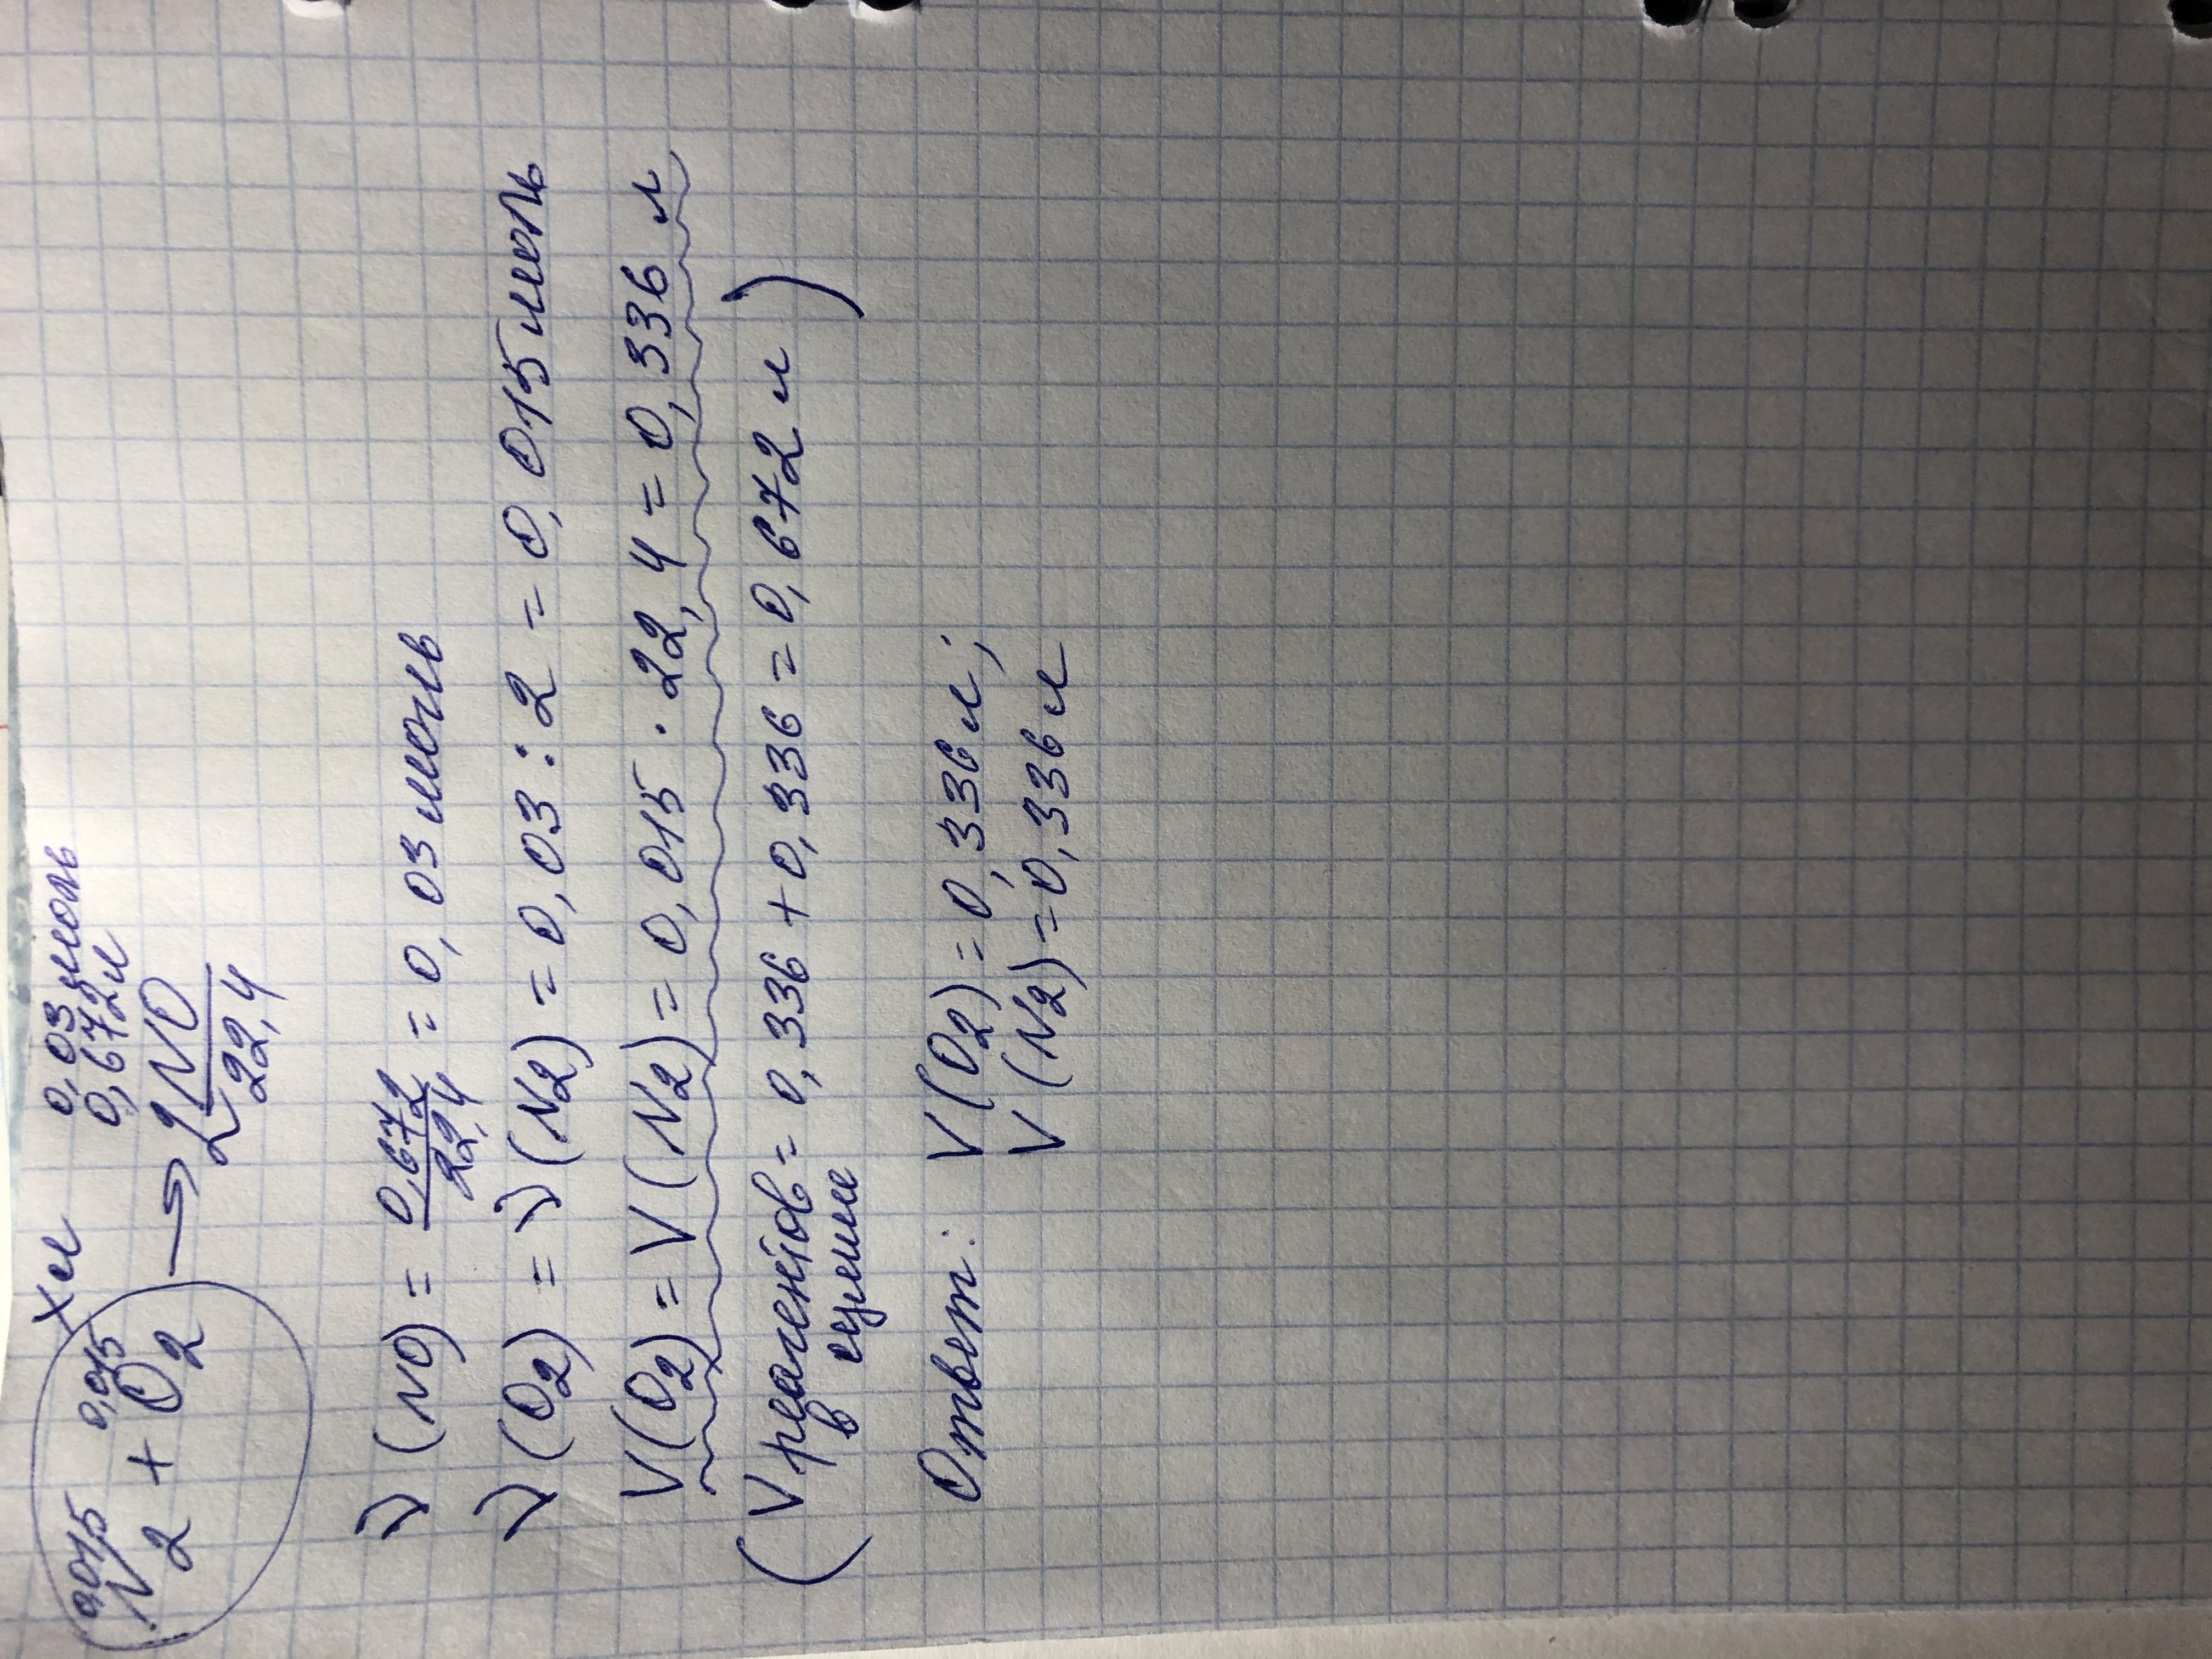 0,015 0,015 x л 0,03 моль
0,672 л
N2 + O2 → 2NO
22,4
ν(NO) = 0,672/22,4 = 0,03 моль
ν(O2) = ν(N2) = 0,03 : 2 = 0,015 моль
V(O2) = V(N2) = 0,015 · 22,4 = 0,336 л
(V реагентов = 0,336 + 0,336 = 0,672 л)
в сумме
Ответ: V(O2) = 0,336 л;
V(N2) = 0,336 л